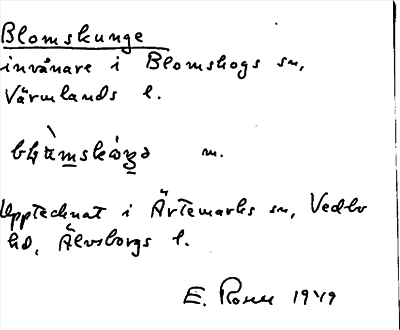 Blomskunge
invånare i Blomskogs sn,
Värmlands l.
m.
Upptecknat i Ärtemarks sn, Vedbo
hd, Älvsborgs l.
E. Rosell 1949